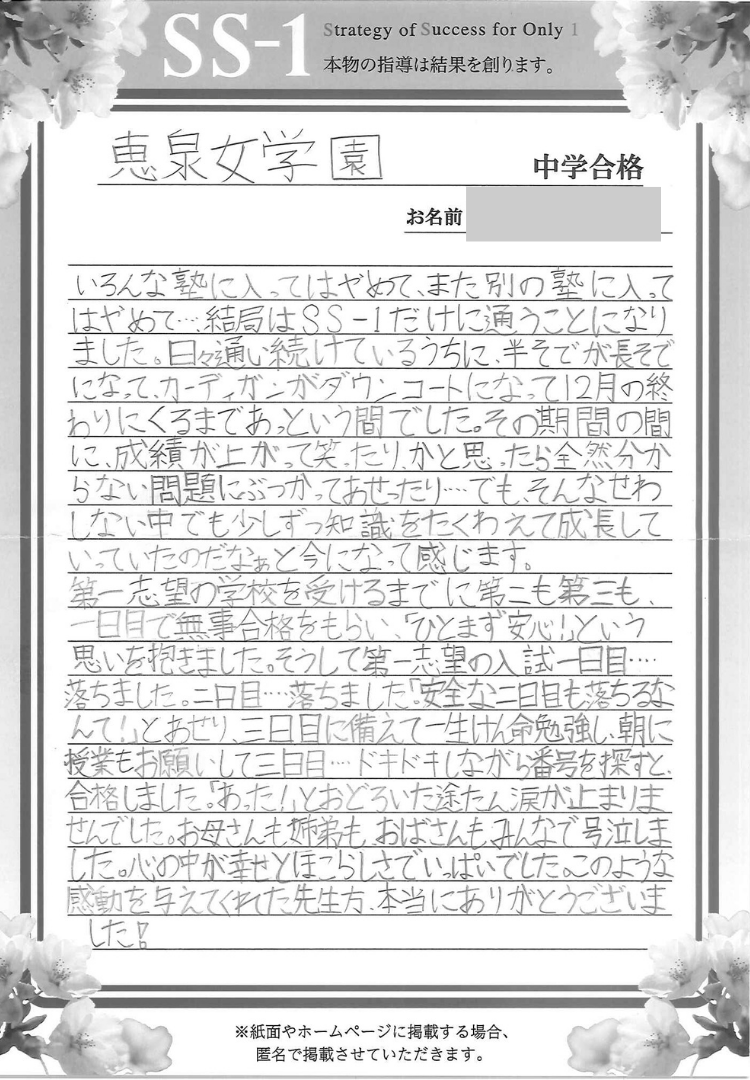 SS-1
Strategy of Success for Only 1
本物の指導は結果を創ります。
恵泉女学園
中学合格
お名前
いろんな塾に入ってはやめて、また別の塾に入って
はやめて…結局はSS-1だけに通うことになり
ました。日々通い続けているうちに、半そでが長そで
になって、カーディガンがダウンコートになって12月の終
わりにくるまであっという間でした。その期間の間
に、成績が上がって笑ったり、かと思ったら全然分か
らない問題にぶつかってあせったり…でも、そんなせわ
しない中でも少しずつ知識をたくわえて成長して
いっていたのだなぁと今になって感じます。
第一志望の学校を受けるまでに第二も第三も、
一日目で無事合格をもらい、「ひとまず安心!」という
思いを抱きました。そうして第一志望の入試一日目…
落ちました。二日目…落ちました。「安全な二日目も落ちるな
んて!」とあせり、三日目に備えて一生けん命勉強し、朝に
授業もお願いして三日目…ドキドキしながら番号を探すと、
合格しました。「あった!」とおどろいた途たん涙が止まりま
せんでした。お母さんも姉弟も、おばさんも、みんなで号泣しま
した。心の中が幸せとほこらしさでいっぱいでした。このような
感動を与えてくれてた先生方、本当にありがとうございま
した!
※紙面やホームページに掲載する場合、
匿名で掲載させていただきます。